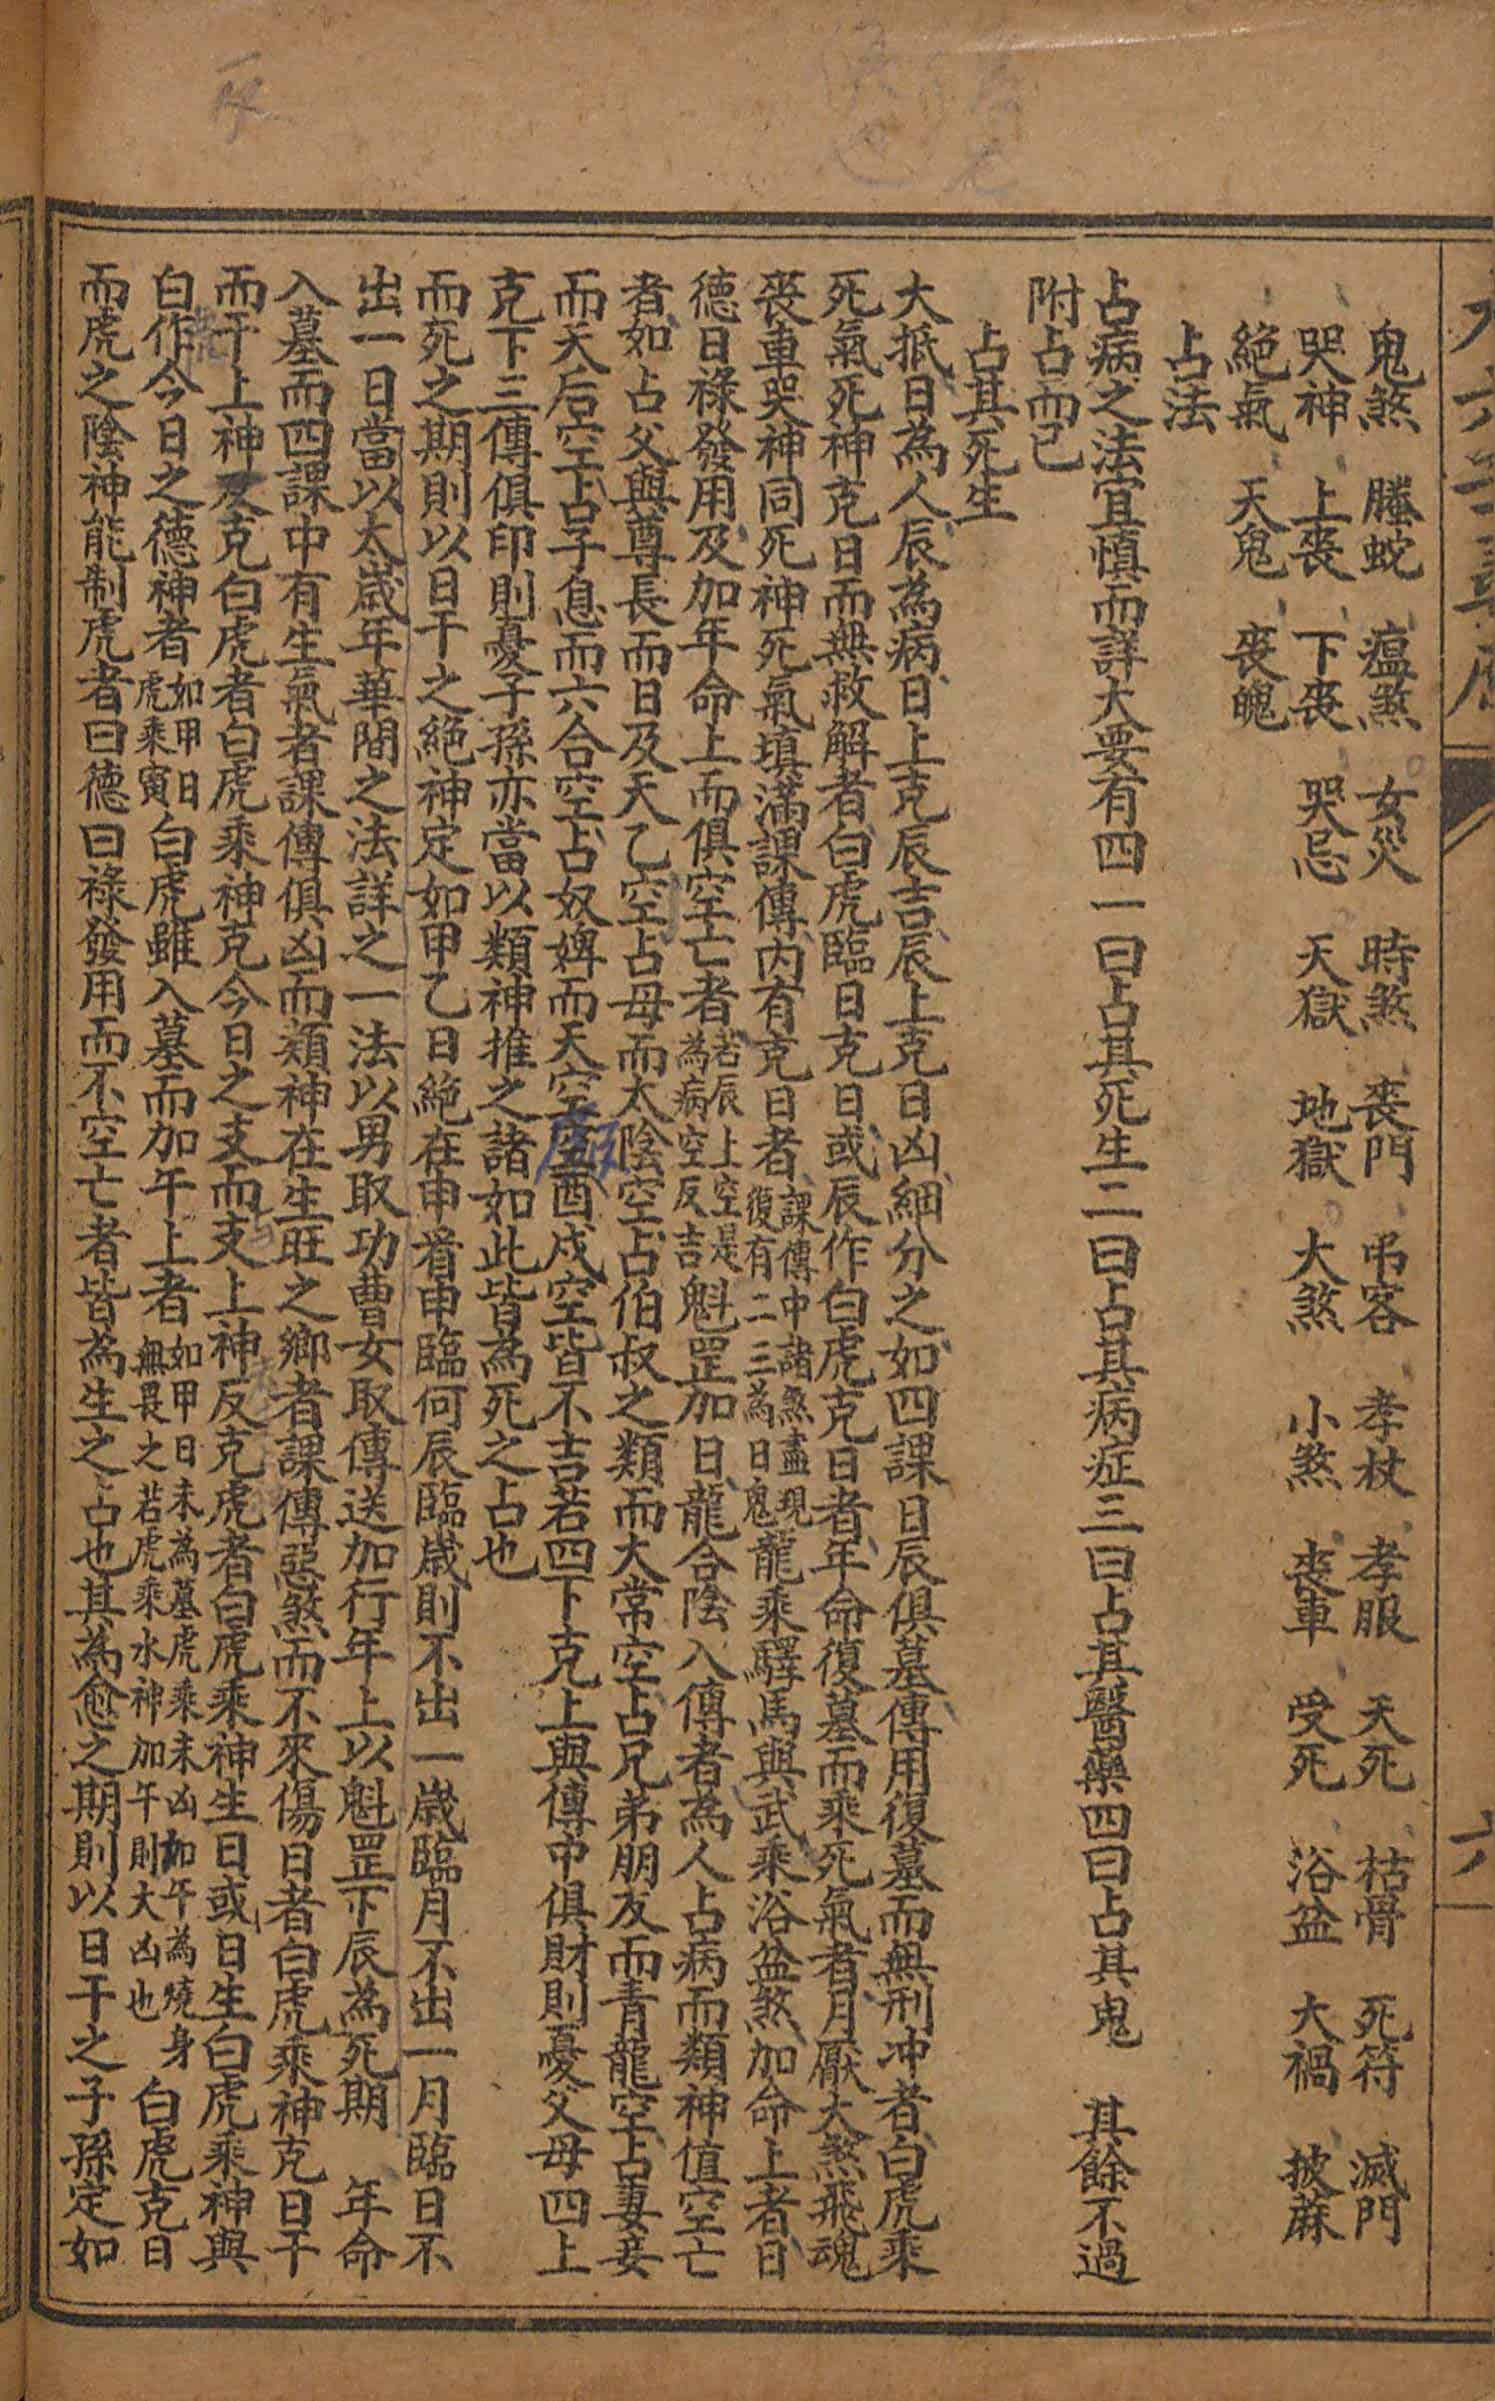 鬼煞 螣蛇 瘟煞 女災 時煞 喪門 弔客 孝杖 孝服 天死 枯骨 死符 滅門
哭神 上喪 下喪 哭忌 天獄 地獄 大煞 小煞 喪車 受死 浴盆 大禍 披蔴
絕氣 天鬼 喪魄
占法
占病之法宜慎而詳大要有四一曰占其死生二曰占其病症三曰占其醫藥四曰占其鬼 其餘不過
附占而已
占其死生
大抵日為人辰為病日上克辰吉辰上克日凶細分之如四課日辰俱墓傳用復墓而無刑冲者白虎乘
死氣死神克日而無救解者白虎臨日克日或辰作白虎克日者年命復墓而乘死氣者月厭大煞飛魂
喪車哭神同死神死氣填滿課傳內有克日者課傳中諸煞盡現復有二三為日鬼龍乘驛馬與武乘浴盆煞加命上者日
德日祿發用及加年命上而俱空亡者若辰上空是為病空反吉魁罡加日龍合陰入傳者為人占病而類神值空亡
者如占父與尊長而日及天乙空占母而太陰空占伯叔之類而大常空占兄弟朋友而青龍空占妻妾
而天后空占子息而六合空占奴婢而天空酉戌空皆不吉若四下克上與傳中俱財則憂父母四上
克下三傳俱印則憂子孫亦當以類神推之諸如此皆為死之占也
而死之期則以日干之絕神定如甲乙日絕在申看申臨何辰臨歲則不出一歲臨月不出一月臨日不
出一日當以太歲年華間之法詳之一法以男取功曹女取傳送加行年上以魁罡下辰為死期 年命
入墓而四課中有生氣者課傳俱凶而類神在生旺之鄉者課傳惡煞而不來傷日者白虎乘神克日干
而干上神反克白虎者白虎乘神克今日之支而支上神反克虎者白虎乘神生日或日生白虎乘神與
白作今日之德神者如甲日虎乘寅白虎雖入墓而加午上者如甲日未為墓虎乘未凶如午為燒身無畏之若虎乘水神加午則大凶也白虎克日
而虎之陰神能制虎者曰德曰祿發用而不空亡者皆為生之占也其為愈之期則以日干之子孫定如
六